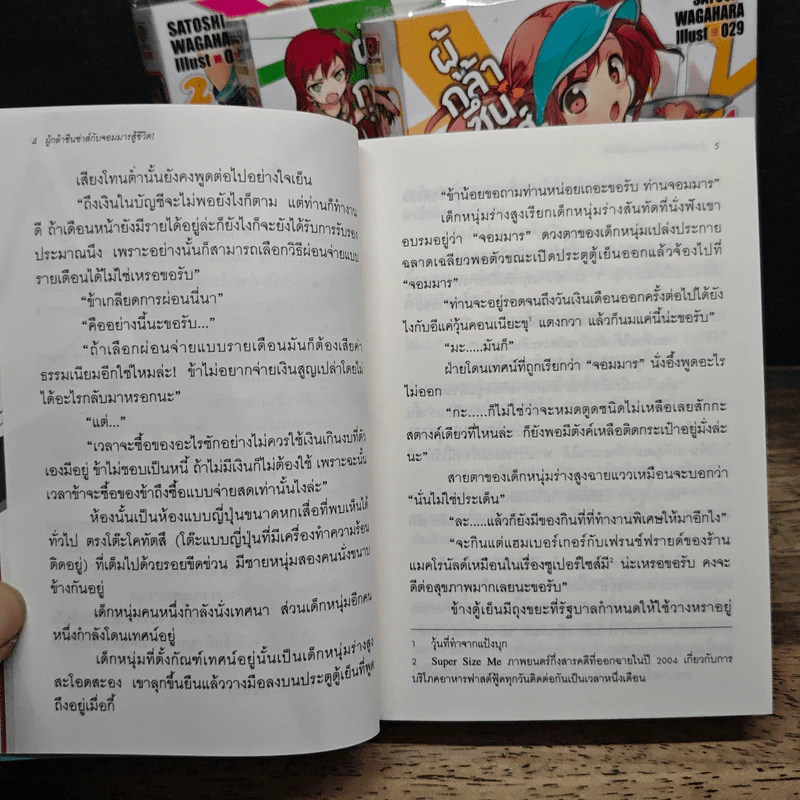 SATOSHI
WAGAHA
Illust
2
SATOSHI
WAGAHARA
Illust 029
ผู้
กล้า
ซึน
4 ผู้กล้าซึนซ่าส์กับจอมมารสู้ชีวิต!
เสียงโทนต่ำนั้นยังคงพูดต่อไปอย่างใจเย็น
“ถึงเงินในบัญชีจะไม่พอยังไงก็ตาม แต่ท่านก็ทำงาน
ดี ถ้าเดือนหน้ายังมีรายได้อยู่ล่ะก็ยังไงก็จะยังได้รับการรับรอง
ประมาณนึง เพราะอย่างนั้นก็สามารถเลือกวิธีผ่อนจ่ายแบบ
รายเดือนได้ไม่ใช่เหรอขอรับ”
“ข้าเกลียดการผ่อนนี่นา”
“คืออย่างนี้นะขอรับ...”
“ถ้าเลือกผ่อนจ่ายแบบรายเดือนมันก็ต้องเสียค่า
ธรรมเนียมอีกใช่ไหมล่ะ! ข้าไม่อยากจ่ายเงินสูญเปล่าโดยไม่
ได้อะไรกลับมาหรอกนะ”
“แต่...”
“เวลาจะซื้อของอะไรซักอย่างไม่ควรใช้เงินเกินงบที่ตัว
เองมีอยู่ ข้าไม่ชอบเป็นหนี้ ถ้าไม่มีเงินก็ไม่ต้องใช้ เพราะฉะนั้น
เวลาข้าจะซื้อของข้าถึงซื้อแบบจ่ายสดเท่านั้นไงล่ะ”
ห้องนั้นเป็นห้องแบบญี่ปุ่นขนาดหกเสื่อที่พบเห็นได้
ทั่วไป ตรงโต๊ะโคทัตสึ (โต๊ะแบบญี่ปุ่นที่มีเครื่องทำความร้อน
ติดอยู่) ที่เต็มไปด้วยรอยขีดข่วน มีชายหนุ่มสองคนนั่งขนาบ
ข้างกันอยู่
เด็กหนุ่มคนหนึ่งกำลังนั่งเทศนา ส่วนเด็กหนุ่มอีกคน
หนึ่งกำลังโดนเทศน์อยู่
เด็กหนุ่มที่ตั้งกัณฑ์เทศน์อยู่นั้นเป็นเด็กหนุ่มร่างสูง
สะโอดสะอง เขาลุกขึ้นยืนแล้ววางมือลงบนประตูตู้เย็นที่พูด
ถึงอยู่เมื่อกี้
5
“ข้าน้อยขอถามท่านหน่อยเถอะขอรับ ท่านจอมมาร”
เด็กหนุ่มร่างสูงเรียกเด็กหนุ่มร่างสันทัดที่นั่งฟังเขา
อบรมอยู่ว่า “จอมมาร” ดวงตาของเด็กหนุ่มเปล่งประกาย
ฉลาดเฉลียวพอตัวขณะเปิดประตูตู้เย็นออกแล้วจ้องไปที่
“จอมมาร”
“ท่านจะอยู่รอดจนถึงวันเงินเดือนออกครั้งต่อไปได้ยัง
ไงกับอีแค่วุ้นคอนเนียะขุ¹ แตงกวา แล้วก็นมแค่นี้น่ะขอรับ”
“มะ.....มันก็”
ฝ่ายโดนเทศน์ที่ถูกเรียกว่า “จอมมาร” นั่งอึ้งพูดอะไร
ไม่ออก
“กะ.....ก็ไม่ใช่ว่าจะหมดตูดชนิดไม่เหลือเลยสักกะ
สตางค์เดียวที่ไหนล่ะ ก็ยังพอมีตังค์เหลือติดกระเป๋าอยู่มั่งล่ะ
นะ”
สายตาของเด็กหนุ่มร่างสูงฉายแววเหมือนจะบอกว่า
“นั่นไม่ใช่ประเด็น”
“ละ.....แล้วก็ยังมีของกินที่ที่ทำงานพิเศษให้มาอีกไง”
“จะกินแต่แฮมเบอร์เกอร์กับเฟรนซ์ฟรายด์ของร้าน
แมคโรนัลด์เหมือนในเรื่องซูเปอร์ไซส์มี² น่ะเหรอขอรับ คงจะ
ดีต่อสุขภาพมากเลยนะขอรับ”
ข้างตู้เย็นมีถุงขยะที่รัฐบาลกำหนดให้ใช้วางหราอยู่
1 วุ้นที่ทำจากแป้งบุก
2 Super Size Me ภาพยนตร์กึ่งสารคดีที่ออกฉายในปี 2004 เกี่ยวกับการ
บริโภคอาหารฟาสต์ฟู้ดทุกวันติดต่อกันเป็นเวลาหนึ่งเดือน